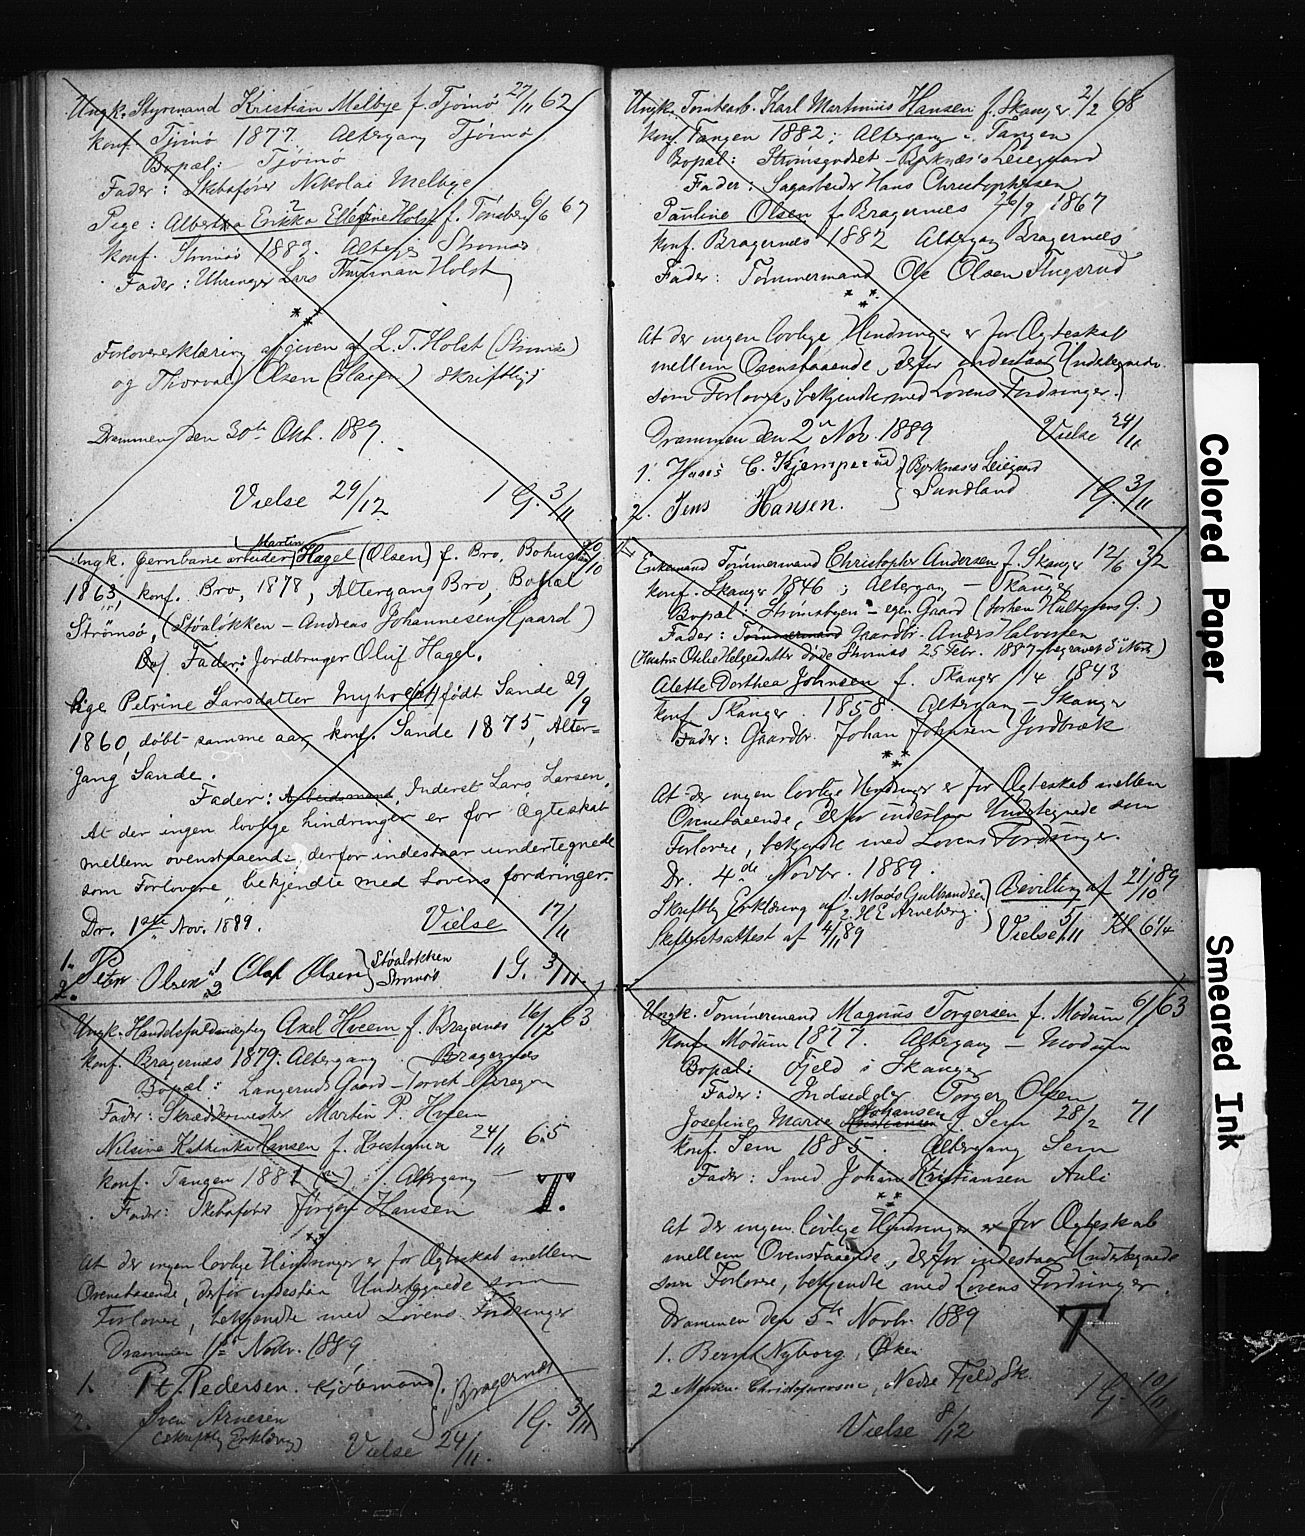 Ungk. Styrmand Kristian Melbye f. Tjømø 27/11 62
konf. Tjømø 1877. Altergang Tjømø
Bopæl: Tjømø
Fader: Skibsfører Nikolai Melbye
Pige: Albertha Erikka Holst f. Tønsberg 6/6 67
konf. Strømsø 1882. Alterg. Strømsø
Fader: Lars Holst
Forlovererklæring afgiven af L. T. Holst (Strømsø)
og Thorvald Olsen skriftligt
Drammen den 30te Okt. 1889.
Vielse 29/12 1 G. 3/11
Martin
Ungk. Jernbanearbeider Hagel (Olsen) f. Bro, Bohuslen 20/10
1863, konf. Bro, 1878, Altergang Bro, Bopæl
Strømsø, (Støaløkken - Andreas Johannesens Gaard)
Fader: Jordbruger Oluf Hagel.
Pige Petrine Larsdatter født Sande 29/9
1860, døbt samme aar, konf. Sande 1875, Alter=
gang Sande.
Fader: Arbeidsmand, Inderst Lars Larsen.
At der ingen lovlige hindringer er for Ægteskab
mellem ovenstaaende, derfor indestaar undertegnede
som Forlovere, bekjendte med Lovens fordringer.
Dr. 1ste Nov. 1889. Vielse 17/11
1. Peter Olsen 2 Olaf Olsen } Støaløkken Strømsø 1 G. 3/11.
Ungk. Handelsfuldmægtig Axel Hoem f. Bragernes 16/12 63
konf. Bragernes 1879. Altergang Bragernes
Bopæl: Langeruds Gaard - Torvet Bragernes
Fader: Skræddermester Martin P. Hoem
Nilsine Kathinka Hansen f. Kristiania 24/11 65
konf. Tangen 1881 Altergang
Fader: Skibsfører Jørgen Hansen T.
At der ingen lovlige Hindringer er for Ægteskab mellem
Ovenstaaende, derfor indestaa Undertegnede som
Forlovere, bekjendte med Lovens Fordringer
Drammen 1ste Novbr. 1889
1. P. Pedersen Kjøbmand } Bragernes
2. Sven Arnesen 1 G. 3/11
(skriftlig Erklæring) Vielse 24/11.
Ungk. Tomtearb. Karl Martinius Hansen f. Skanger 2/2 68
konf. Tangen 1882; Altergang i Tangen
Bopæl: Strømsgodset - Bjerknæs's Leiegaard
Fader: Sagarbeider Hans Christophersen
Pauline Olsen f. Bragernes 26/9 1867
konf. Bragernes 1882 Altergang Bragernes
Fader: Tømmermand Ole Olsen
At der ingen lovlige Hindringer er for Ægteskab
mellem Ovenstaaende, derfor indestaar Undertegnede
som Forlovere, bekjendte med Lovens Fordringer.
Drammen den 2n Nov. 1889 Vielse 24/11
1. Hans C. Kjemperud } Bjerknæs's Leiegaard
2. Jens Hansen. } Sundland 1 G. 3/11
Enkemand Tømmermand Christopher Andersen f. Skanger 12/6 32
konf. Skanger 1846; Altergang - Skanger
Bopæl: Strømsbyen - egen Gaard
Fader: Tømmermand Gaardbr. Anders Halvorsen
(Hustru Otilie Helgesdatter døde Strømsø 25 Febr. 1887 begravet 5 Marts)
Alette Dorthea Johnsen f. Skanger 1/4 1843
konf. Skanger 1858. Altergang - Skanger
Fader: Gaardbr. Johan Johnsen Jordbræk
At der ingen lovlige Hindringer er for Ægteskab mellem
Ovenstaaende, derfor indestaa Undertegnede som
Forlovere, bekjendte med Lovens Fordringer.
Dr. 4de Novbr. 1889.
Skriftlig Erklæring af 1. Mads Gulbrandsen 2. H E Arneberg. } Bevilling af 21/10 89
Skifteretsattest af 4/11 89 Vielse 5/11 Kl 6 1/4
Ungk. Tømmermand Magnus Torgersen f. Modum 6/1 63
Konf. Modum 1877. Altergang - Modum
Bopæl: Fjeld i Skanger
Fader: Indsidder Torger Olsen
Josefine Marie Kristiansen Johansen f. Sem 28/2 71
konf. Sem 1885. Altergang Sem
Fader: Smed Johan Kristiansen Auli
At der ingen lovlige Hindringer er for Ægteskab
mellem Ovenstaaende, derfor indestaar Undertegnede
som Forlovere, bekjendte med Lovens Fordringer.
Drammen den 5te Novbr. 1889 T
1. Bernt Nyborg,
2 Christofersen, Nedre Fjeld Sk. 1 G. 10/11
Vielse 8/12
Colored Paper
Smeared Ink